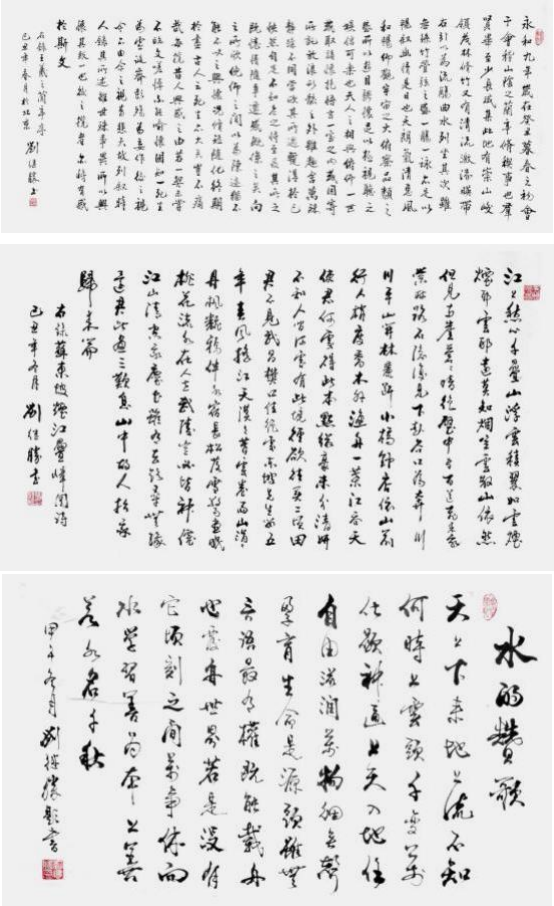 永和九年歲在癸丑暮春之初會
于會稽山陰之蘭亭修禊事也羣
賢畢至少長咸集此地有崇山峻
領茂林脩竹又有清流激湍映帶
左右引以為流觴曲水列坐其次雖
無絲竹管弦之盛一觴一詠亦足以
暢敘幽情是日也天朗氣清惠風
和暢仰觀宇宙之大俯察品類之
盛所以遊目騁懷足以極視聽之
娛信可樂也夫人之相與俯仰一世
或取諸懷抱悟言一室之內或因寄
所託放浪形骸之外雖趣舍萬殊
靜躁不同當其欣於所遇暫得於己
快然自足不知老之將至及其所之
既惓情隨事遷感慨係之矣向
之所欣俛仰之間以為陳迹猶不
能不以之興懷況脩短隨化終期
於盡古人云死生亦大矣豈不痛
哉每攬昔人興感之由若合一契未嘗
不臨文嗟悼不能喻之於懷固知一死生
為虛誕齊彭殤為妄作後之視
今亦由今之視昔悲夫故列敘時
人錄其所述雖世殊事異所以興
懷其致一也後之攬者亦將有感
於斯文
右錄王羲之蘭亭序
己丑年春月於北京 劉保勝書
江上愁心千疊山浮雲積翠如雲煙
煙耶雲耶遠莫知煙空雲散山依然
但見兩崖蒼蒼暗絕谷中有百道飛來泉
縈林絡石隱復見下赴谷口為奔川
川平山開林麓斷小橋野店依山前
行人稍度喬木外漁舟一葉江吞天
使君何處得此本點綴毫末分清妍
不知人間何處有此境徑欲往買二頃田
君不見武昌樊口幽絕處東坡先生留五
年春風搖江天漠漠暮雲卷雨山娟娟
丹楓翻鴉伴水宿長松落雪驚晝眠
桃花流水在人世武陵豈必皆神仙
江山清空我塵土雖有去路尋無緣
還君此畫三歎息山中故人應有招我
歸來篇
右錄蘇東坡煙江疊嶂圖詩
己丑年冬月 劉保勝書
水的贊歌
天上下來地上流不知
何時上雲頭千變萬
化顯神通上天入地任
自由滋潤萬物細無聲
孕育生命是源頭雖無
言語最有權既能載舟
也覆舟世界若是沒有
它頃刻之間萬事休向
水學習善為本上善
若水名千秋
甲午冬月劉保勝題書